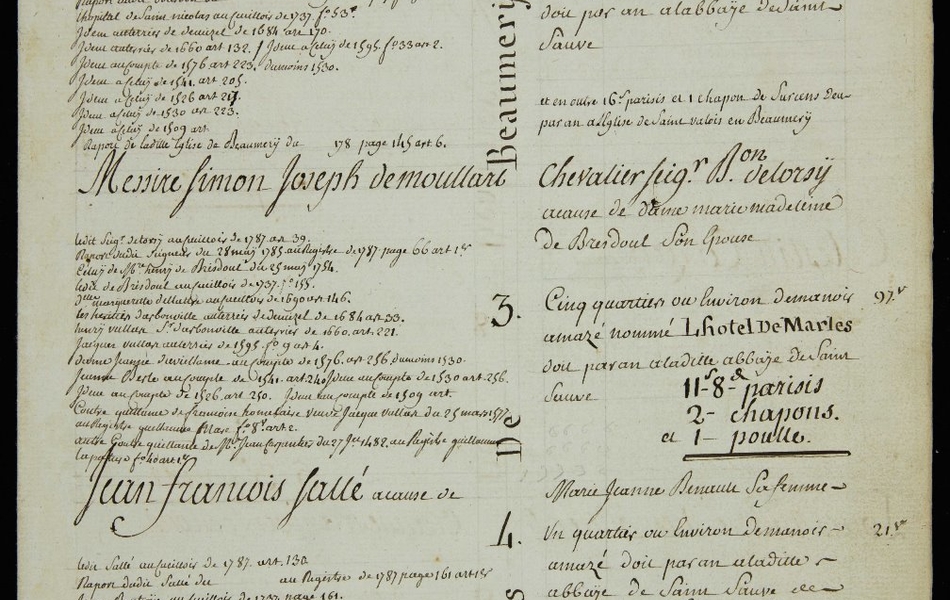 hopital de Saint nicolas au cuillois de 1737. f.° 53.r
Idem au terrier de demizel de 1684 art 170.
Idem au terrier de 1660 art 132. / Idem a celuy de 1595. f.° 33 art 2.
Idem au compte de 1576 art 223. du moins 1530.
Idem a celuy de 1541. art 205.
Idem a celuy de 1526 art
Idem a celuy de 1530 art 223.
Idem a celuy de 1509 art
Raport de ladite Eglise de Beaumery du 178 page 145 art 6.
Messire Simon Joseph demoullart
ledit Seigr. de torsy au cuillois de 1787. art 39.
Raport dudit Seigneur du 28 may 1785. au Registre de 1787 page 66 art 1er
Celuy de Mr. henry de Bresdoul du 25 may 1754.
ledit de Bresdoul au cuillois de 1737. f.° 155.
Dlle margueritte au cuillois de 1690 art 146.
les heritiers Darbonville au terrier de demizel de 1684 art 33.
henry vullart Sr. darbonville au terrier de 1660. art. 221.
Jacques vullart au terrier de 1595. f.° 9 art 4.
dame Jeanne de villame au compte de 1576. art 256. du moins 1530.
Jeanne Berle au compte de 1541. art. 240 / Idem au compte de 1530 art 256.
Idem au compte de 1526. art 250. Idem au compte de 1509 art.
Contre guillame de francoise honnefaise veuve Jacque Vullart du 25 mars 1577
au Registre guillaume Mase f.° 8.r art 2.
autre Contre guillame de Mr. Jean Carpentier du 27 Jer 1482. au Registre guillaume
la f.° 40 art 1er
Jean francois Sallé acause de
ledit Sallé au cuillois de 1787. art. 130
Raport dudit Sallé du au Registre de 1787 page 161 art 1er
au cuillois de 1737. page 161.
Beaumery
De
3.
4.
doit par an a labbaÿe de Saint
Sauve
et en outre 16.s parisis et 1 chapon de Surcens Deu
par an a l'Eglise de Saint valois en Beaumery
Chevalier Seigr. B.on de torsy
acause de dame marie madeleine
de Bresdoul Son Epouse
Cinq quartiers ou Environ demanoir
amazé nommé L'hotel De Marles
doit par an a ladite abbaÿe de Saint
Sauve 11s 8d parisis
2 - chapons.
et 1 - poulle.
97.v
Marie Jeanne Benault Sa femme
Un quartier ou Environ demanoir
amazé doit par an a ladite
abbaÿe de Saint Sauve
21.